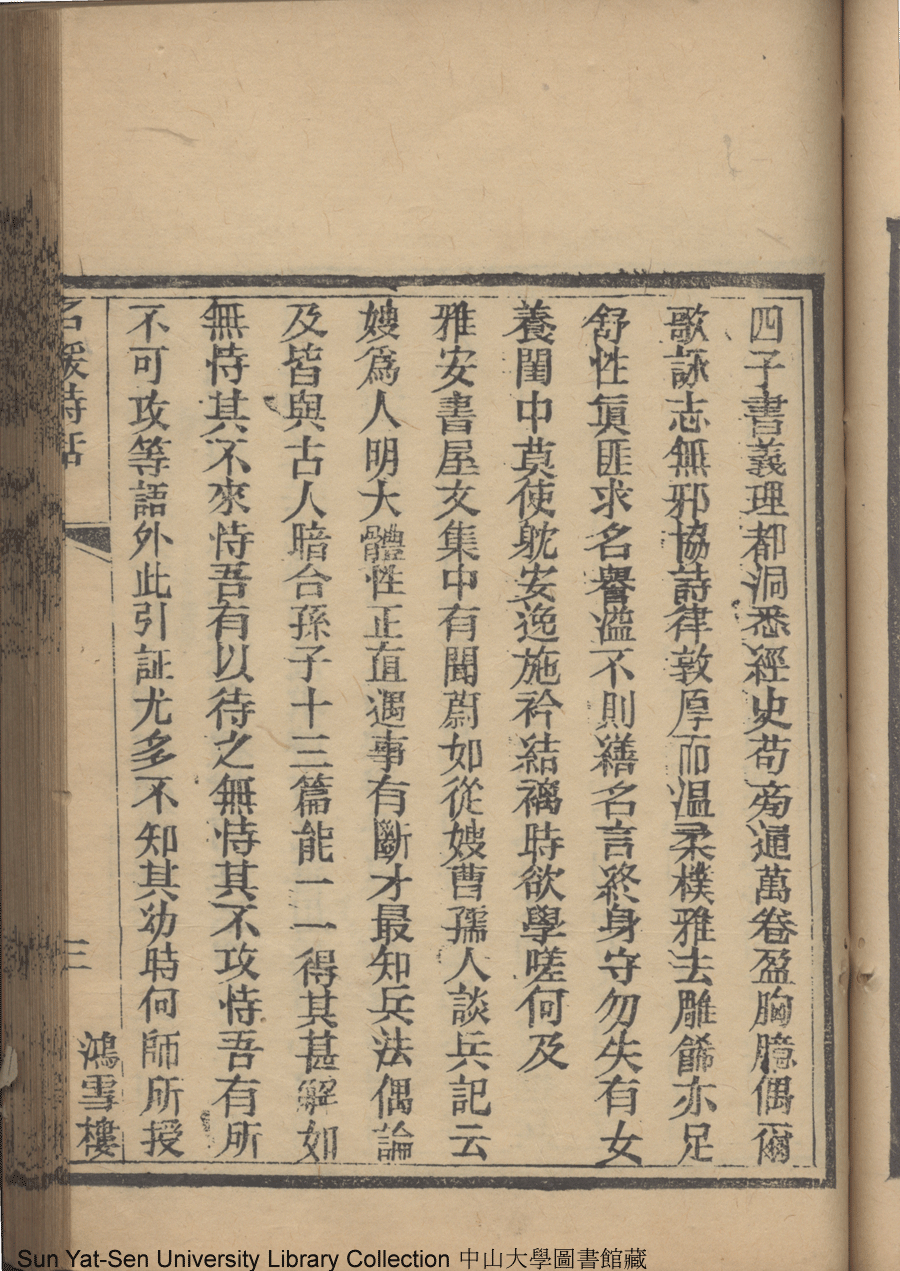 四子書義理都洞悉經史苟旁通萬卷盈胸臆偶爾
歌詠志無邪協詩律敦厚而温柔樸雅去雕餙亦足
舒性眞匪求名譽溢不則繕名言終身守勿失有女
養閨中莫使躭安逸施衿結褵時欲學嗟何及
雅安書屋文集中有聞蔚如從嫂曹孺人談兵記云
嫂爲人明大體性正直遇事有斷才最知兵法偶論
及皆與古人暗合孫子十三篇能一一得其甚解如
無恃其不來恃吾有以待之無恃其不攻恃吾有所
不可攻等語外此引証尤多不知其幼時何師所授
名媛詩話
三
鴻雪樓
Sun Yat-Sen University Library Collection 中山大學圖書館藏